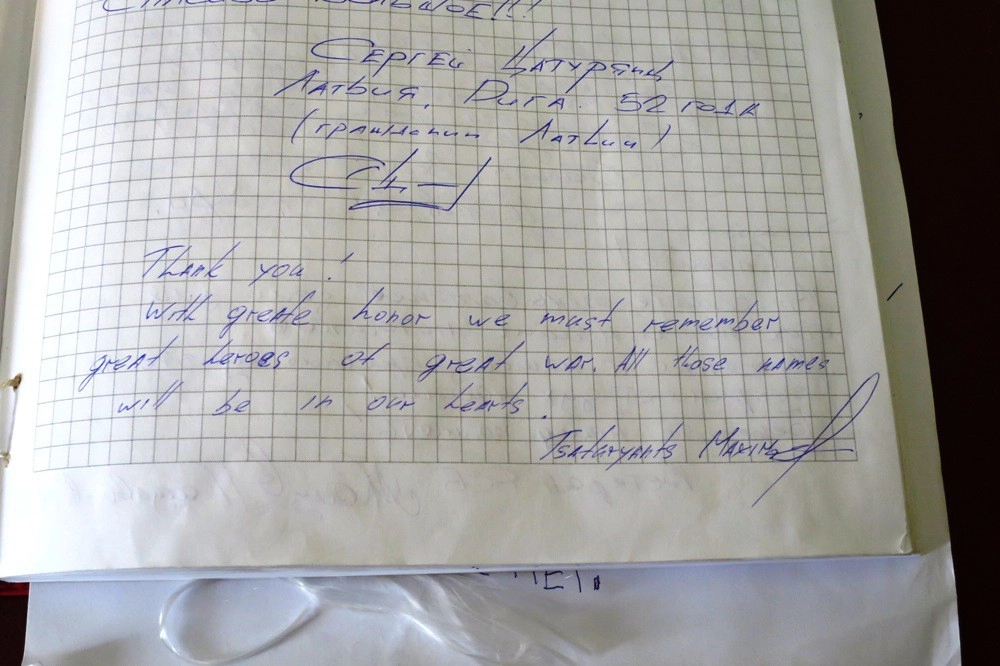 Спасибо большое!!!
Сергей Цатурянц
Латвия, Рига. 52 года
(гражданин Латвии)
Thank you!
With greate honor we must remember
great heroes of great war. All those names
will be in our hearts.
Tsaturyants Maxim